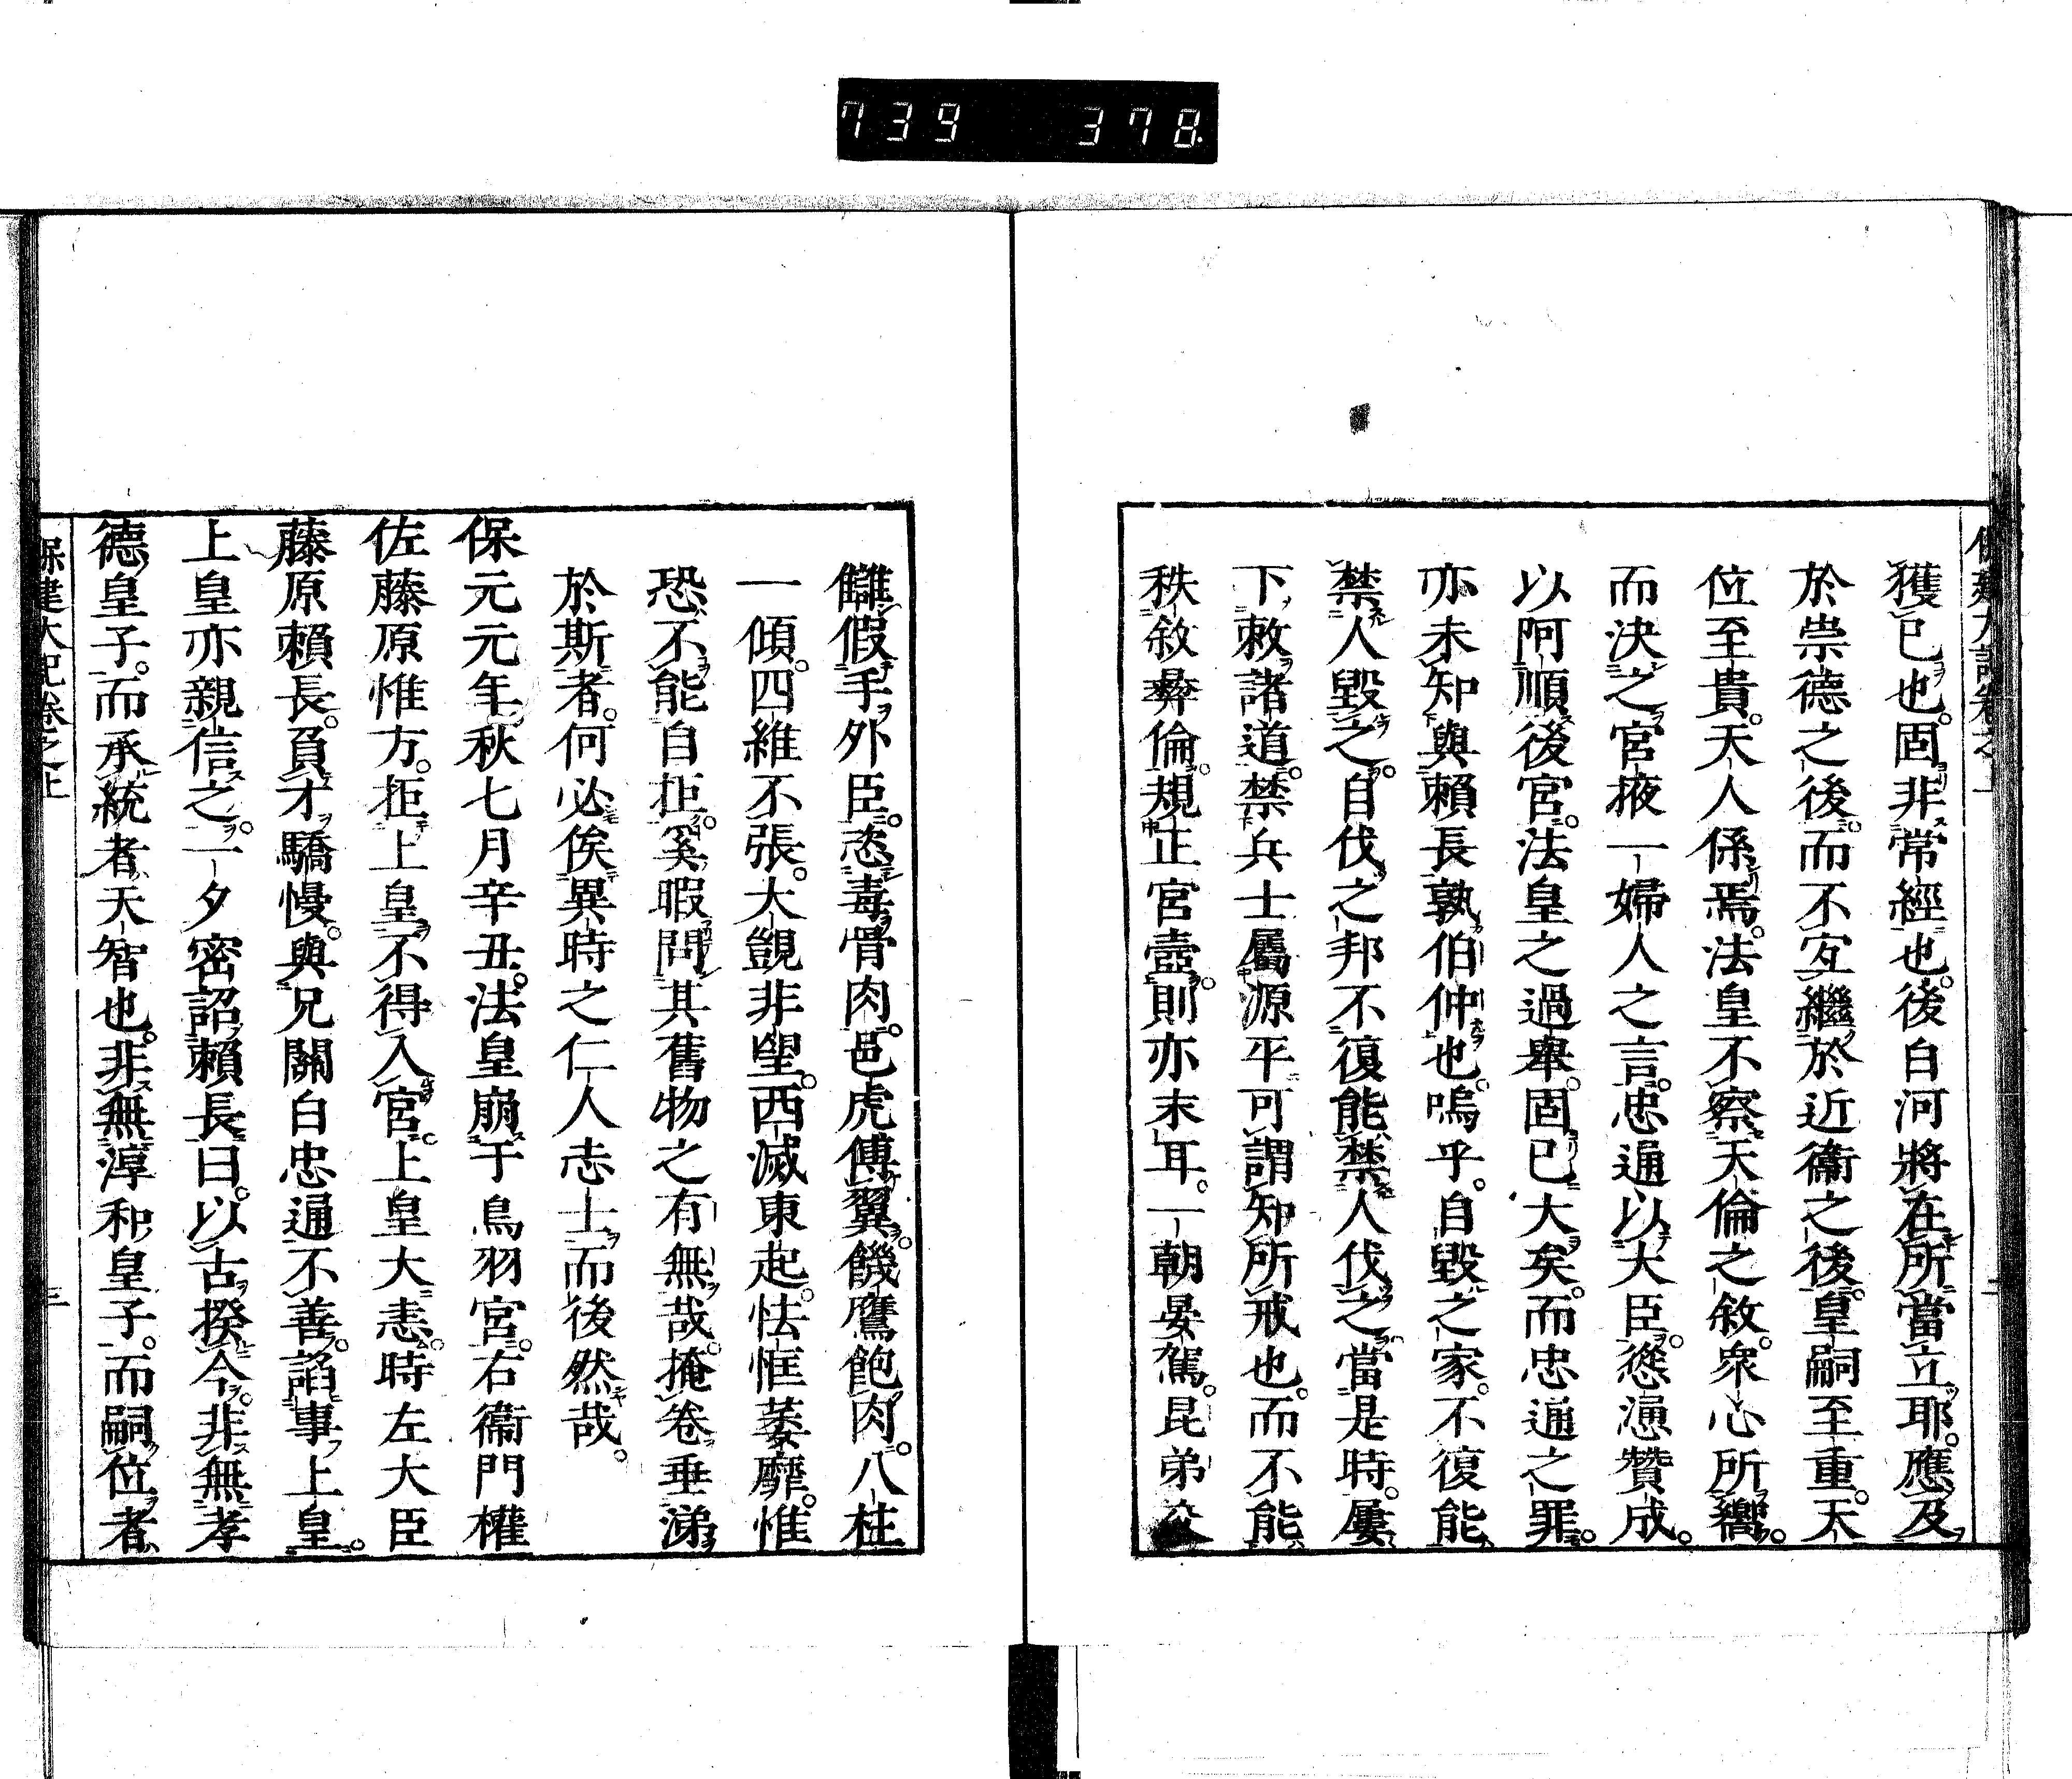 739 378
保建大記卷之上 二
獲已也。固非常經也。後白河將在所當立耶。應及
於崇德之後。而不宐繼於近衞之後。皇嗣至重。天
位至貴。天人係焉。法皇不察天倫之敘。衆心所嚮。
而決之宮掖一婦人之言。忠通以大臣。慫慂贊成。
以阿順後宮。法皇之過舉。固已大矣。而忠通之罪。
亦未知與賴長孰伯仲也。嗚乎。自毀之家。不復能
禁人毀之。自伐之邦不復能禁人伐之。當是時。屢
下敕諸道。禁兵士屬源平。可謂知所戒也。而不能
秩敘彝倫。規正宮壼。則亦末耳。一朝晏駕。昆弟交
讎。假手外臣。恣毒骨肉。邑虎傅翼。饑鷹飽肉。八柱
一傾。四維不張。大覬非望。西滅東起。怯恇萎靡。惟
恐不能自拒。奚暇問其舊物之有無哉。掩卷垂涕
於斯者。何必俟異時之仁人志士而後然哉。
保元元年。秋七月辛丑。法皇崩于鳥羽宮。右衞門權
佐藤原惟方。拒上皇。不得入宮。上皇大恚。時左大臣
藤原賴長。負才驕慢。與兄關白忠通不善。諂事上皇。
上皇亦親信之。一夕密詔賴長曰。以古揆今。非無孝
德皇子。而承統者。天智也。非無淳和皇子。而嗣位者
保建大記卷之上 三